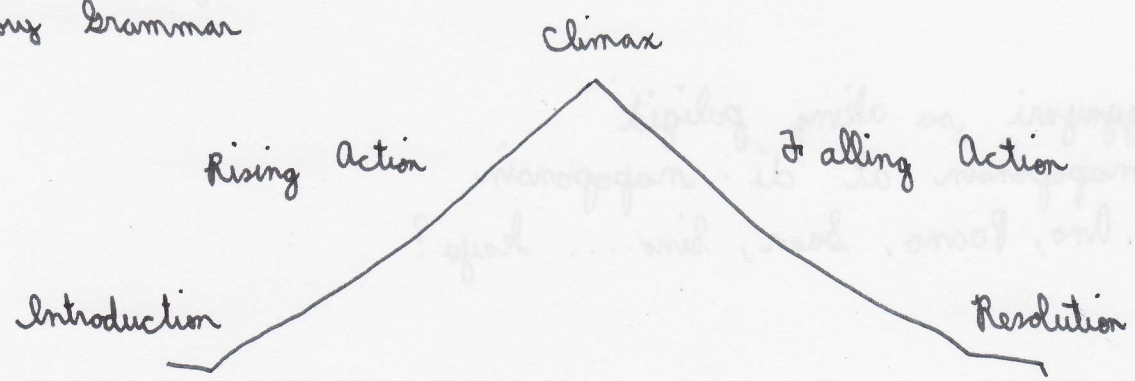 Grammar
Climax
Rising Action
Falling Action
Introduction
Resolution